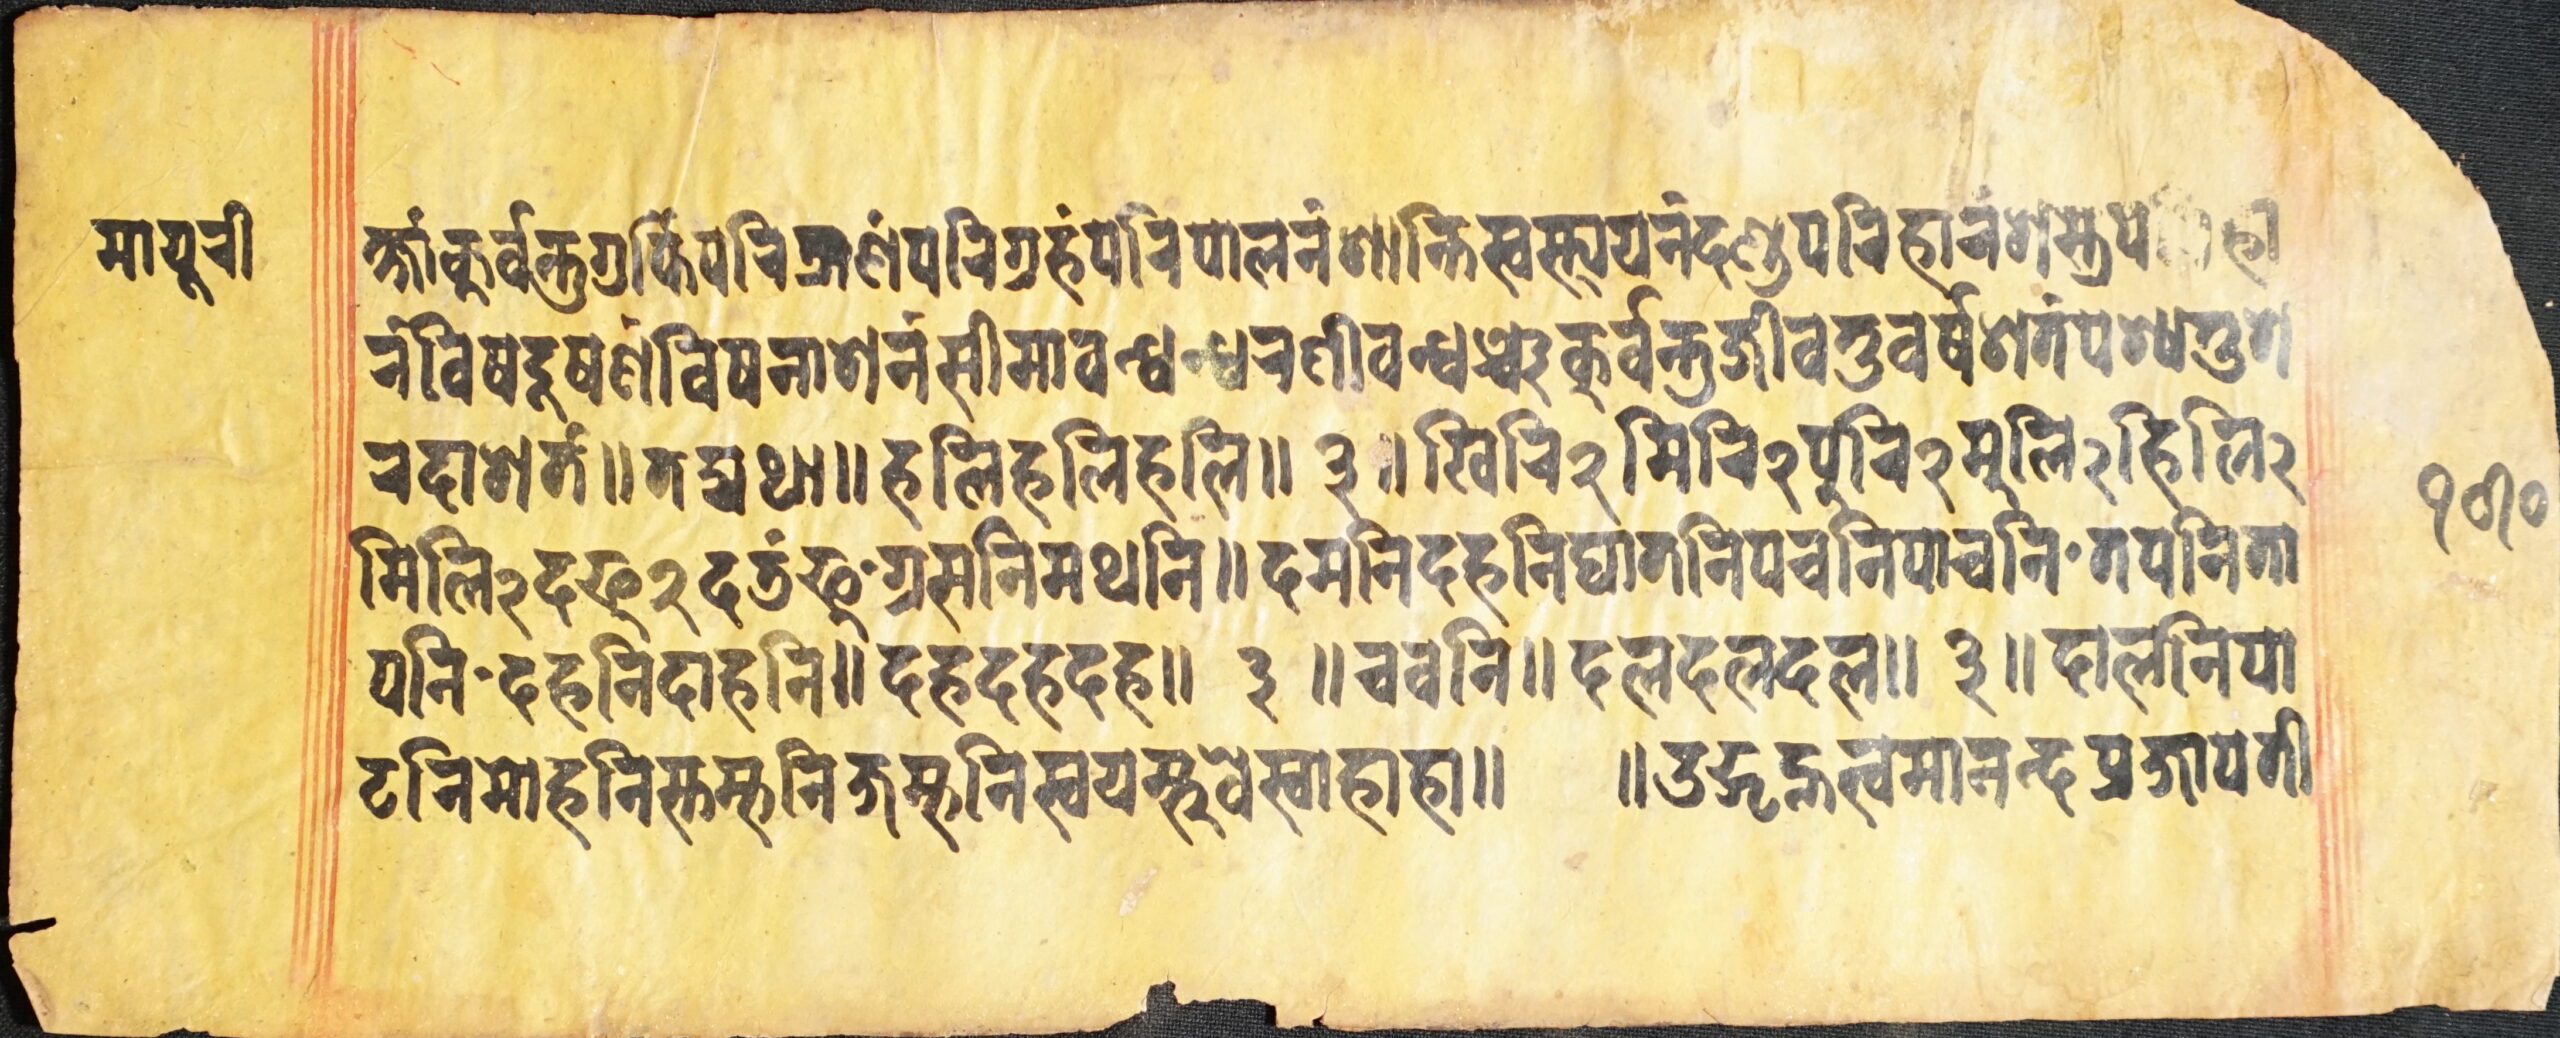 मायूरी
क्षांकुर्वन्तुगुप्तिंपरित्राणंपरिग्रहंपरिपालनंशान्तिस्वस्त्ययनंदण्डपरिहारंशस्त्रप
रंविषदूषणंविषनाशनंसीमावन्धन्धरणीवन्धञ्चकुर्वन्तुजीवतुवर्षशतंपश्यतुश
रदाशतं॥तद्यथा॥हलिहलिहलि॥ ३॥खिरि२मिरि२पुरि२मुलि२हिलि२
१७०
मिलि२दफु२दतंफु·ग्रसनिमथनि॥दमनिदहनिघातनिपचनिपाचनि·तपनिता
पनि·दहनिदाहनि॥दहदहदह॥ ३ ॥चवनि॥दलदलदल॥ ३॥दालनिपा
टनिमोहनिस्तम्भनिजम्भनिस्वयम्भुवेस्वाहाहा॥ ॥उद्गृह्णत्वमानन्दप्रजापती